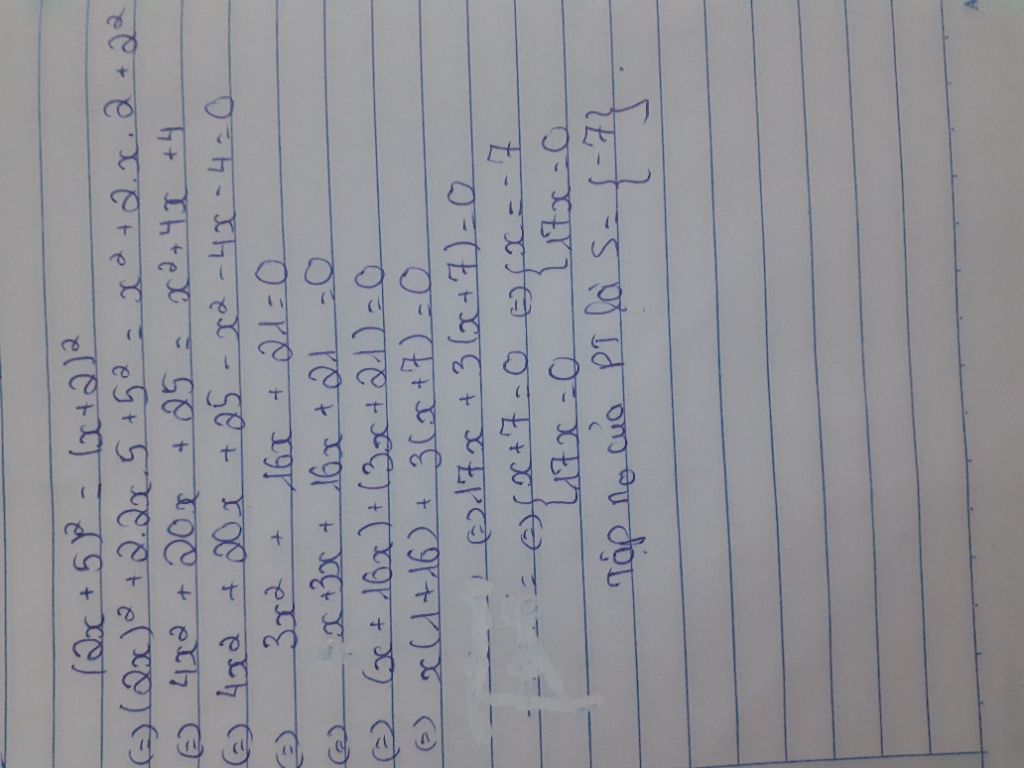 (2x + 5)² = (x+2)²
(=) (2x)² + 2.2x.5 + 5² = x² + 2.x.2 + 2²
(=) 4x² + 20x + 25 = x² + 4x + 4
(=) 4x² + 20x + 25 - x² - 4x - 4 = 0
(=) 3x² + 16x + 21 = 0
(=) x + 3x + 16x + 21 = 0
(=) (x + 16x) + (3x + 21) = 0
(=) x(1+16) + 3(x+7) = 0
(=) 17x + 3(x+7) = 0
= (=) { x+7 = 0 (=) { x = -7
{ 17x = 0 { 17x = 0
Tập n₀ của PT là S = { -7 }.